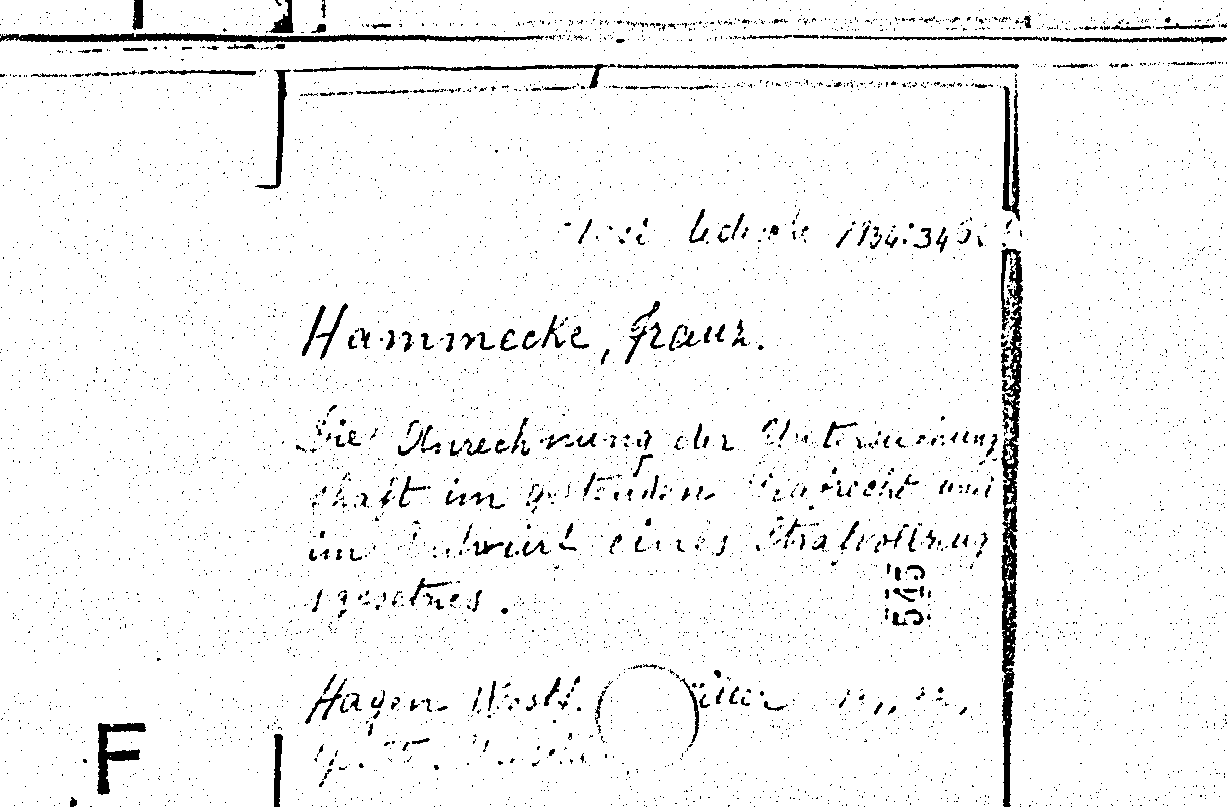 1934:346
Hammecke, Franz.
Die Anrechnung der Untersuchung
shaft im geltenden Strafrecht und
im Entwurf eines Strafvollzug
sgesetzes.
545
Hagen Westf.
F